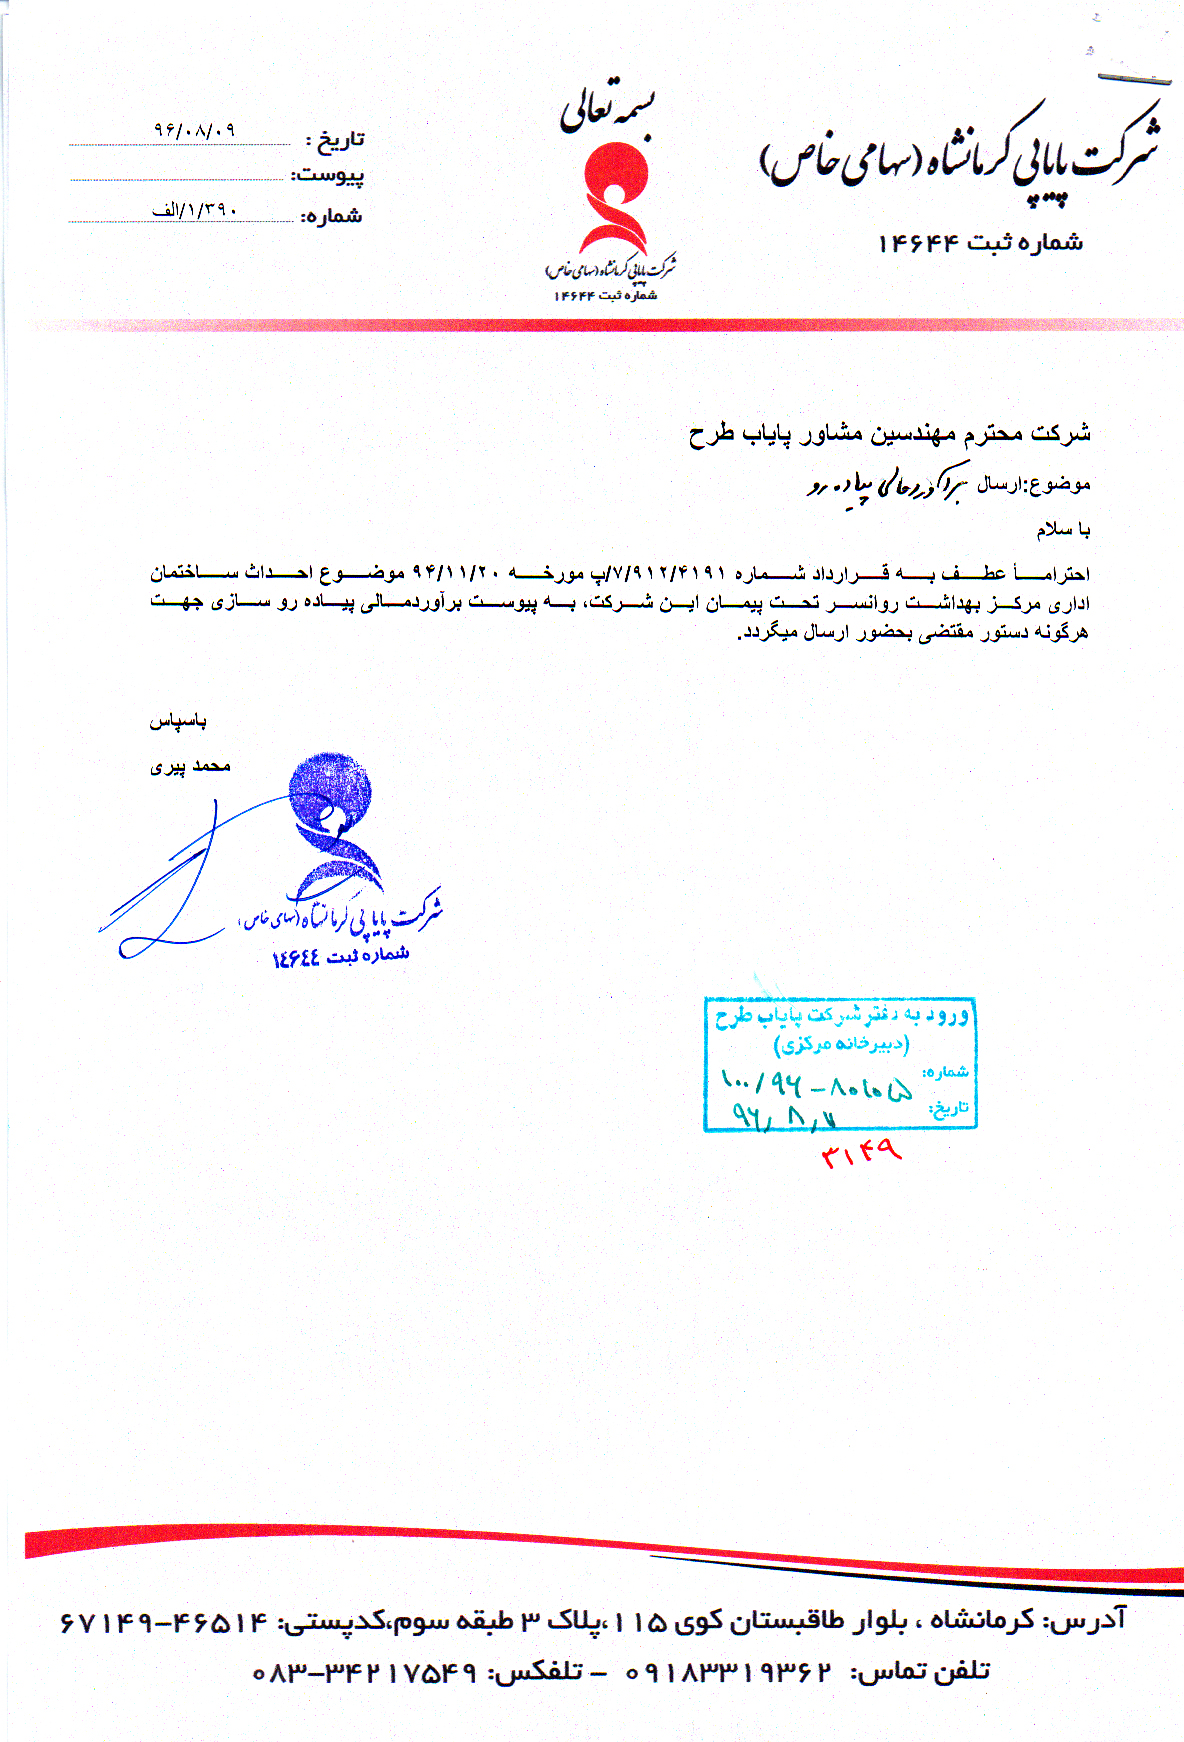 بسمه تعالی
شرکت پایاپی کرمانشاه (سهامی خاص)
شماره ثبت ۱۴۶۴۴
شرکت پایاپی کرمانشاه (سهامی خاص)
شماره ثبت ۱۴۶۴۴
تاریخ : ۹۶/۰۸/۰۹
پیوست:
شماره: ۳۹۰/۱/الف
شرکت محترم مهندسین مشاور پایاب طرح
موضوع:ارسال برآورد مالی پیاده رو
با سلام
احتراماً عطف به قرارداد شماره ۷/۹۱۲/۴۱۹۱/پ مورخه ۹۴/۱۱/۲۰ موضوع احداث ساختمان
اداری مرکز بهداشت روانسر تحت پیمان این شرکت، به پیوست برآوردمالی پیاده رو سازی جهت
هرگونه دستور مقتضی بحضور ارسال میگردد.
باسپاس
محمد پیری
شرکت پایاپی کرمانشاه (سهامی خاص)
شماره ثبت ۱۴۶۴۴
ورود به دفتر شرکت پایاب طرح
(دبیرخانه مرکزی)
شماره: ۱۰۰/۹۶-۸۰۱۰۵
تاریخ:
۳۱۴۹
آدرس: کرمانشاه ، بلوار طاقبستان کوی ۱۱۵ ،پلاک ۳ طبقه سوم،کدپستی: ۴۶۵۱۴-۶۷۱۴۹
تلفن تماس: ۰۹۱۸۳۳۱۹۳۶۲ - تلفکس: ۳۴۲۱۷۵۴۹-۰۸۳